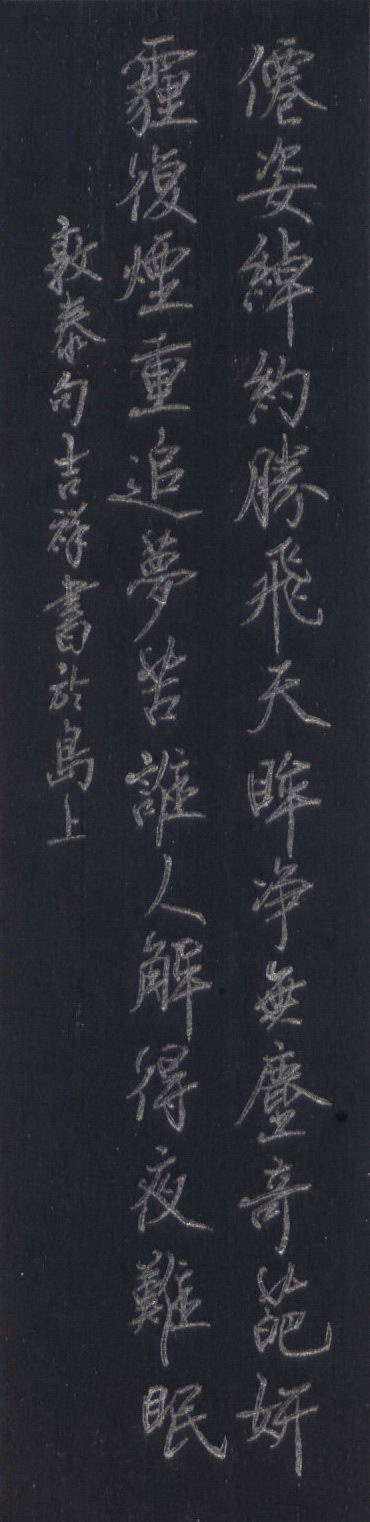 僊姿綽約勝飛天眸净無塵奇葩妍
霾復煙重追夢苦誰人解得夜難眠
敦泰句吉祥書於島上